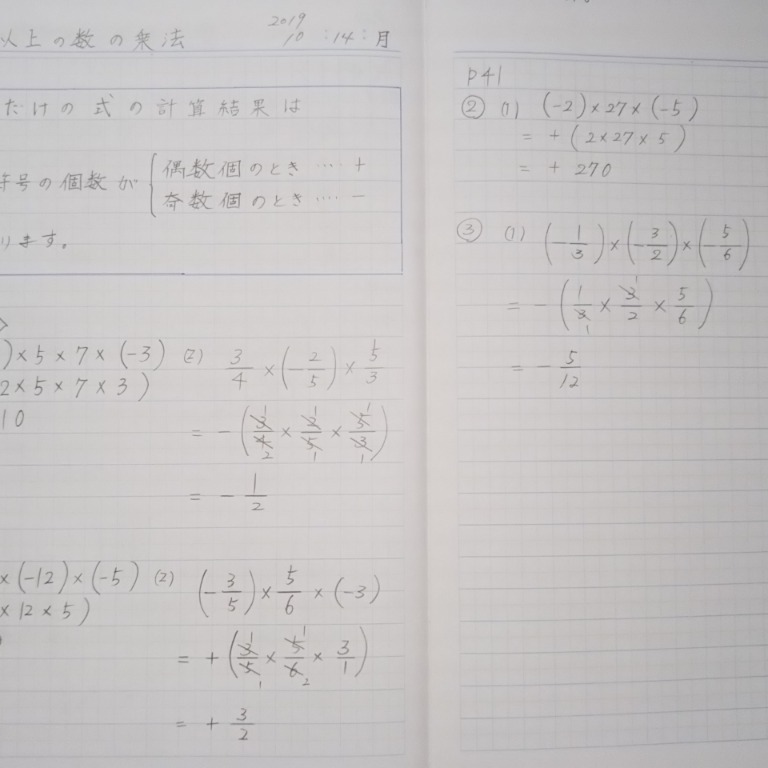 以上の数の乗法
2019
10:14:月
だけの式の計算結果は
符号の個数が { 偶数個のとき …… +
奇数個のとき …… −
ります。
)×5×7×(-3)
2×5×7×3)
10
(2) 3/4 × (-2/5) × 5/3
= -(3/4 × 2/5 × 5/3)
= - 1/2
×(-12)×(-5)
×12×5)
(2) (-3/5) × 5/6 × (-3)
= +(3/5 × 5/6 × 3/1)
= + 3/2
P41
② (1) (-2)×27×(-5)
= +(2×27×5)
= + 270
③ (1) (-1/3)×(-3/2)×(-5/6)
= -(1/3 × 3/2 × 5/6)
= - 5/12